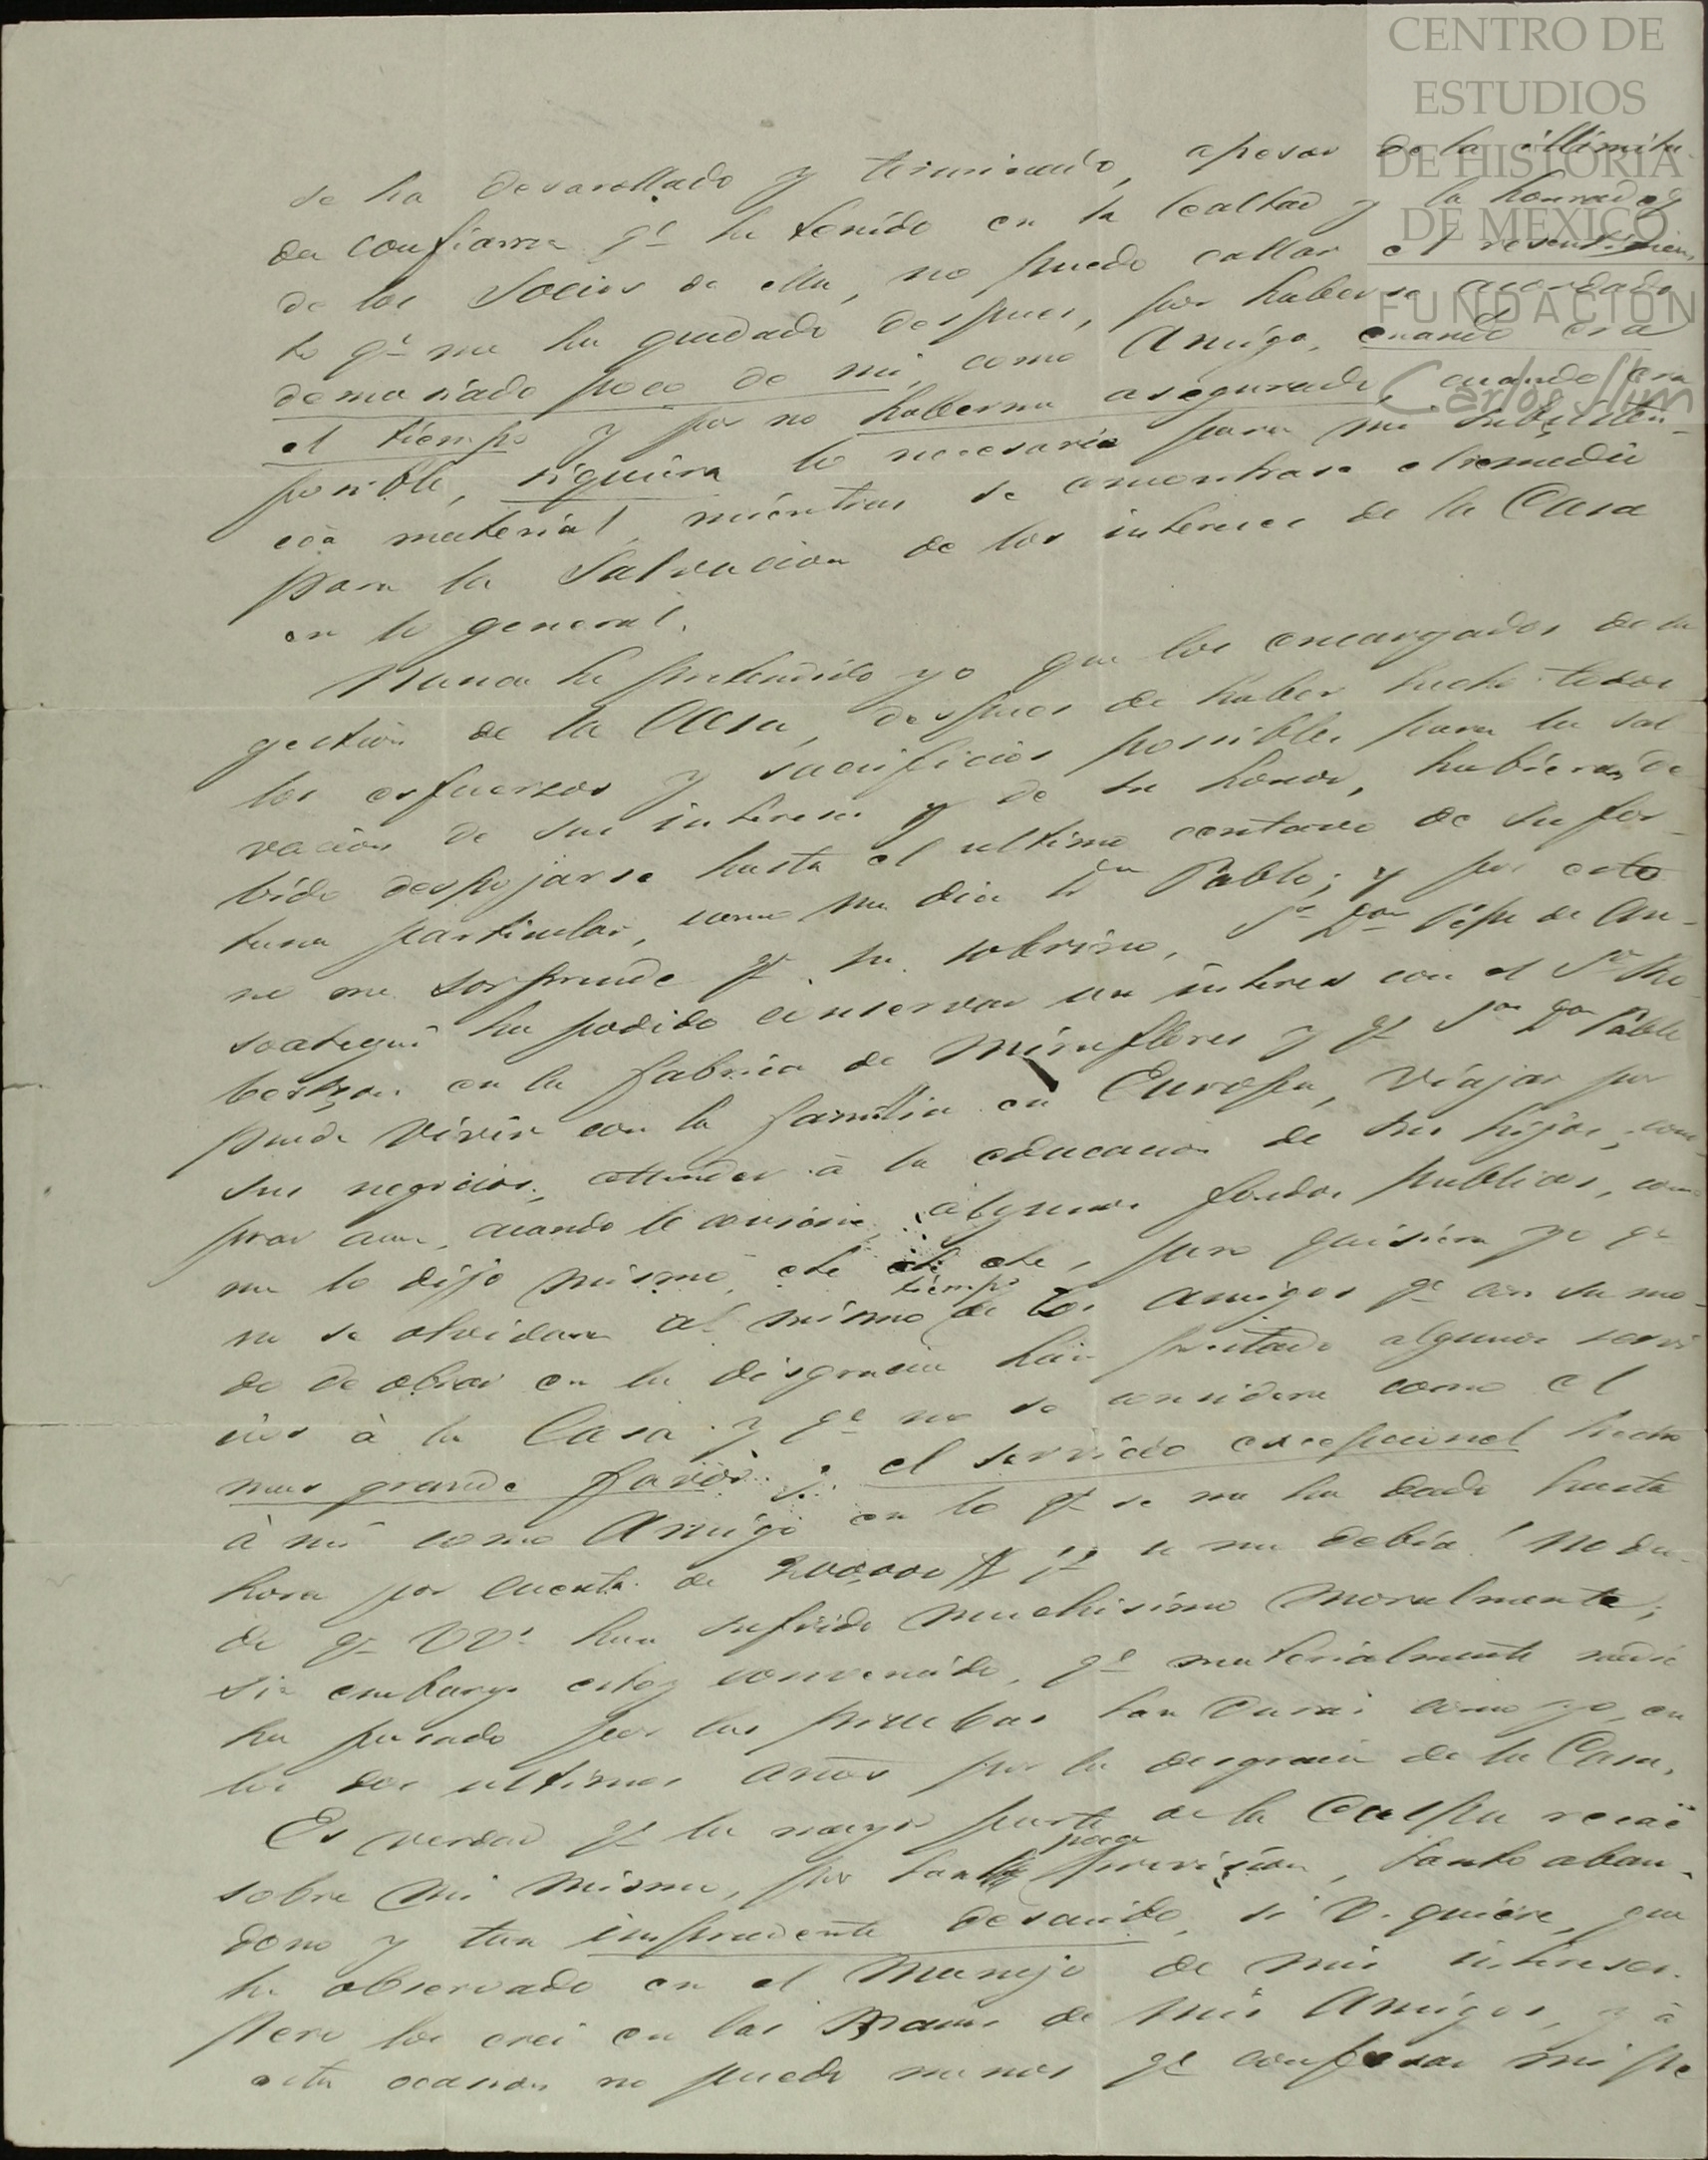 CENTRO DE
ESTUDIOS
DE HISTORIA
DE MEXICO
FUNDACIÓN
Carlos Slim
se ha desarollado y terminado, apesar de la illimita-
da confianza qe he tenido en la lealtad y la honradez
de los Socios de ella, no puedo callar el resentimien-
to qe me ha quedado despues, por haberse acordado
demasiado poco de mi, como Amigo, cuando era
el tiempo y por no haberme asegurado, cuando era
posible, siquiera lo necesario para mi subsisten-
cia material, miéntras se encontrase el remedio
para la Salvacion de los intereses de la Casa
en lo general.
Nunca he pretendido yo que los encargados de la
gestion de la Casa, despues de haber hecho todos
los esfuerzos y sacrificios posibles para la sal-
vacion de sus intereses y de su honor, hubieran de-
bido despojarse hasta el ultimo centavo de su for-
tuna particular, como me dice Dn Pablo; y por esto
no me sorprende qe su sobrino, Sr Don Pepe de An-
soategui ha podido conservar un interes con el Sr Ro-
bertson en la fabrica de Miraflores y qe Sor Don Pablo
puede vivir con la familia en Europa, viajar por
sus negocios, attender à la educacion de sus hijos, com-
prar aun, cuando le conviene, algunos fondos publicos, como
me lo dijo mismo, etc etc etc, pero quisiera yo qe
no se olvidara al mismo tiempo de los amigos qe con su mo-
do de obrar en la disgracia han prestado algunos servi-
cios à la Casa y qe no se considere como el
mas grande favor y el servicio excepcional hecho
à mi como Amigo en lo qe se me ha dado hasta
hora por cuenta de 200,000 $ qe se me debia! No du-
do qe VVs han sufrido muchisimo moralmente;
sin embargo estoy convencido, qe materialmente nadie
ha pasado por las pruebas tan duras como yo, en
los dos ultimos años por la desgracia de la Casa.
Es verdad qe la mayor parte de la Culpa recaë
sobre mi mismo, por tan poca prevision, tanto aban-
dono y tan imprudente descuido, si V. quiere, que
he observado en el Manejo de mis intereses.
Pero los creï en las Manos de mis Amigos, y à
esta ocasion no puedo menos qe confesar mi pe